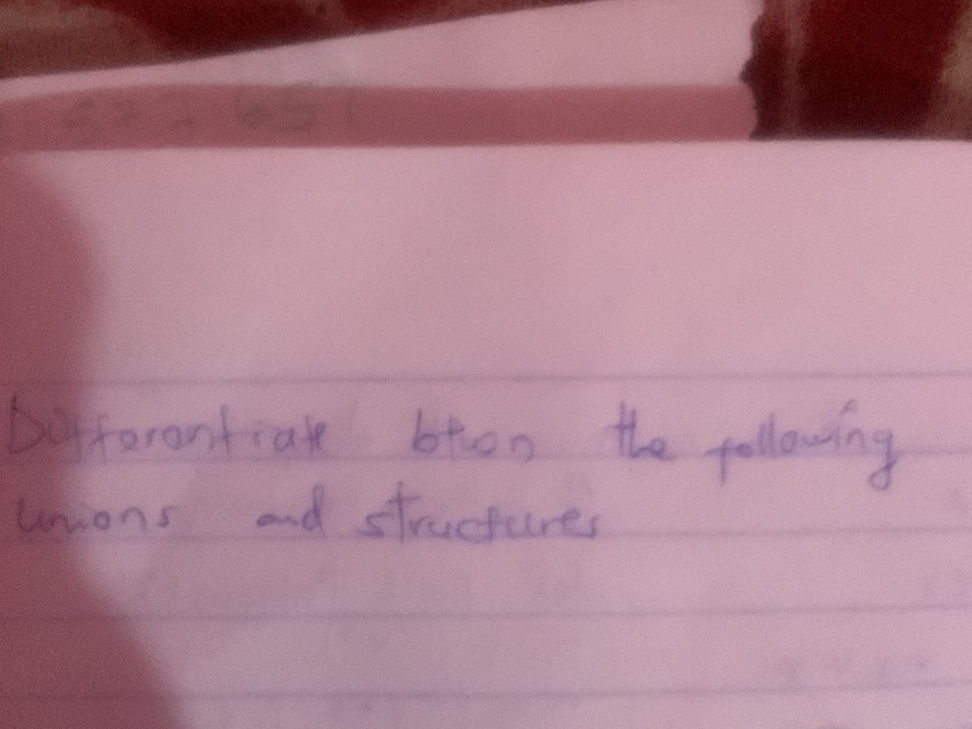 Differentiate btwn the following
unions and structures